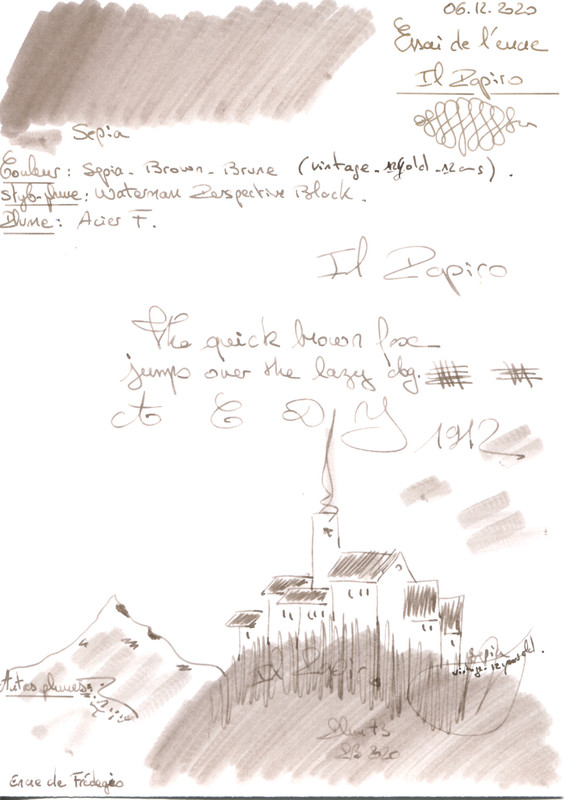 06.12.2020
Essai de l'encre
Il Papiro
Sepia
Couleur : Sepia - Brown - Brune (vintage - 12 y old - 12 ans).
Stylo-plume : Waterman Perspective Black.
Plume : Acier F.
Il Papiro
The quick brown fox
jumps over the lazy dog.
A E D Y 1912
Sepia
vintage - 12 years old.
Il Papiro
Autres plumes :
2020
Encre de Frédegùs